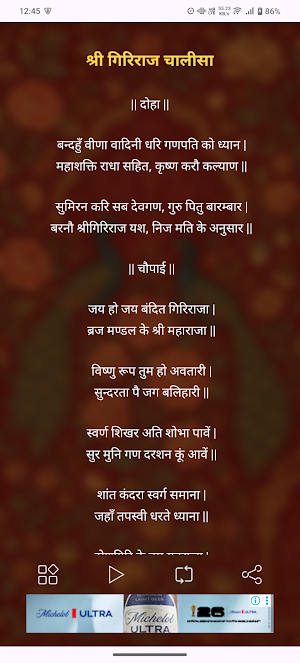 12:45
55.23 KB/S
86%
श्री गिरिराज चालीसा
|| दोहा ||
बन्दहुँ वीणा वादिनी धरि गणपति को ध्यान |
महाशक्ति राधा सहित, कृष्ण करौ कल्याण ||
सुमिरन करि सब देवगण, गुरु पितु बारम्बार |
बरनौ श्रीगिरिराज यश, निज मति के अनुसार ||
|| चौपाई ||
जय हो जय बंदित गिरिराजा |
ब्रज मण्डल के श्री महाराजा ||
विष्णु रूप तुम हो अवतारी |
सुन्दरता पै जग बलिहारी ||
स्वर्ण शिखर अति शोभा पावें |
सुर मुनि गण दरशन कूं आवें ||
शांत कंदरा स्वर्ग समाना |
जहाँ तपस्वी धरते ध्याना ||
Michelob ULTRA
Michelob ULTRA
26